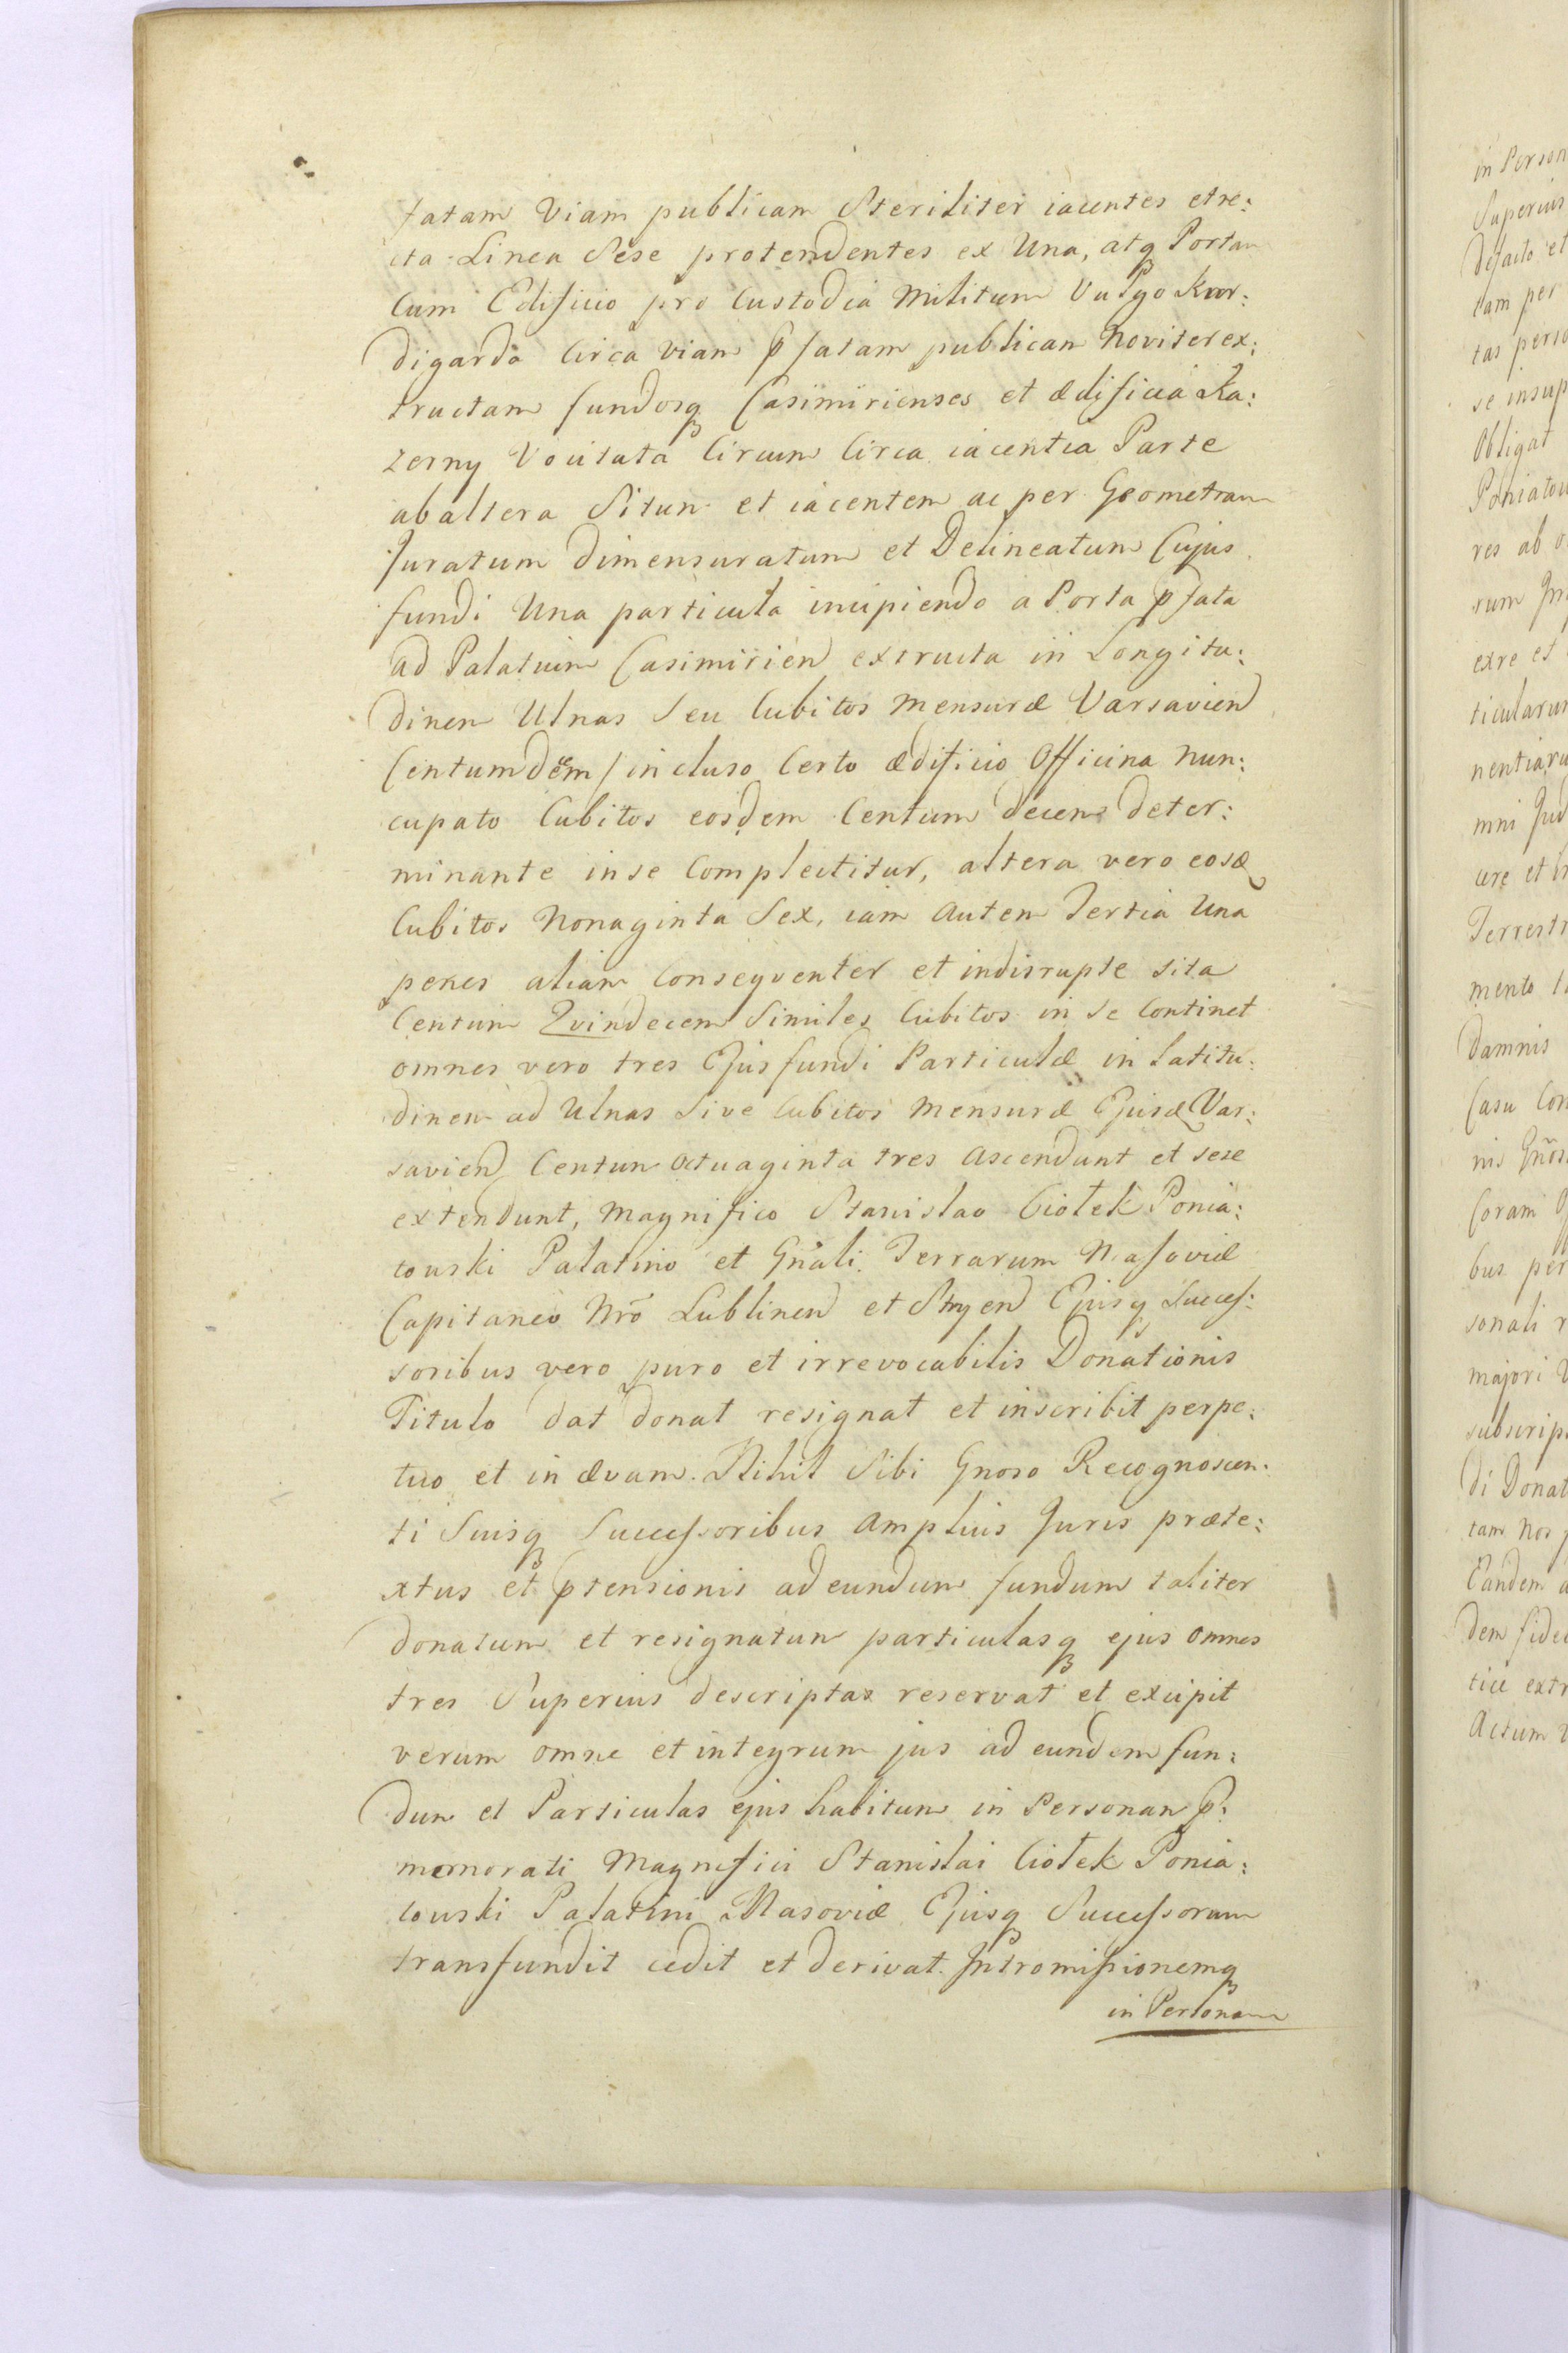 fatam Viam publicam Steriliter iacentes et re:
cta Linea Sese protendentes ex Una, atq Portam
Cum Edificio pro Custodia Militum Vulgo Kor:
digarda Circa Viam pfatam publicam Noviter ex:
tructam fundosq Casimirienses et ædificia Ka:
zerny Vocitata Circum Circa iacentia Parte
ab altera Situm et iacentem ac per Geometram
Juratum dimensuratum et Delineatum Cujus
fundi Una particula incipiendo a Porta pfata
ad Palatium Casimirien extructa in Longitu:
dinem Ulnas Seu Cubitos Mensuræ Varsavien
Centum dem / incluso Certo ædificio Officina Nun:
cupato Cubitos eosdem Centum decem deter:
minante in se Complectitur, altera vero eosd
Cubitos Nonaginta Sex, iam Autem Tertia Una
penes aliam Conseqventer et indisrupte Sita
Centum Qvindecem Similes Cubitos in se Continet
omnes vero tres Ejus fundi Particulæ in Latitu:
dinem ad Ulnas Sive Cubitos Mensuræ Ejusd Var:
savien Centum Octuaginta tres Ascendunt et sese
extendunt, Magnifico Stanislao Ciołek Ponia:
towski Palatino et Gñali Terrarum Masoviæ
Capitaneo Nrõ Lublinen et Stryen Ejusq Succes:
soribus vero puro et irrevocabilis Donationis
Titulo dat donat resignat et inscribit perpe:
tuo et in ævum. Nihil Sibi Gnoso Recognoscen:
ti Suisq Successoribus Amplius Juris præte:
xtus et ptensionis ad eundum fundum taliter
donatum et resignatum particulasq ejus omnes
tres Superius descriptas reservat et excipit
verum omne et integrum jus ad eundem fun:
dum et Particulas ejus habitum in Personam p:
memorati Magnifici Stanislai Ciołek Ponia:
towski Palatini Masoviæ Ejusq Successorum
transfundit cedit et derivat. Intromissionemq
in Personam
in Person
Superius
Defacto et
tam per
tas perso
se insup
Obligat
Poniatow
res ab o
rum
exre et
ticularum
nentiaru
mni Jud
cere et
Terrestr
mento
Damnis
Casu Con
nis Gños
Coram
bus per
sonali r
majori
subscrip
di Donat
tam Nos
Eandem a
dem fide
tice extr
Actum